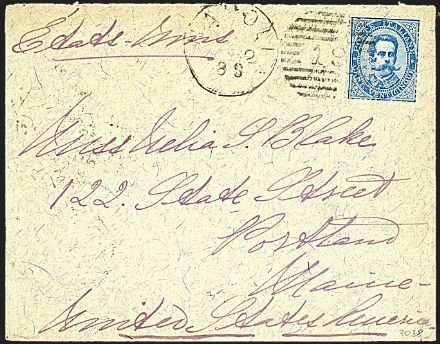 Etats-Unis
88
18
Miss Nelia S. Blake
122 State Street
Portland
Maine-
United States America
7038